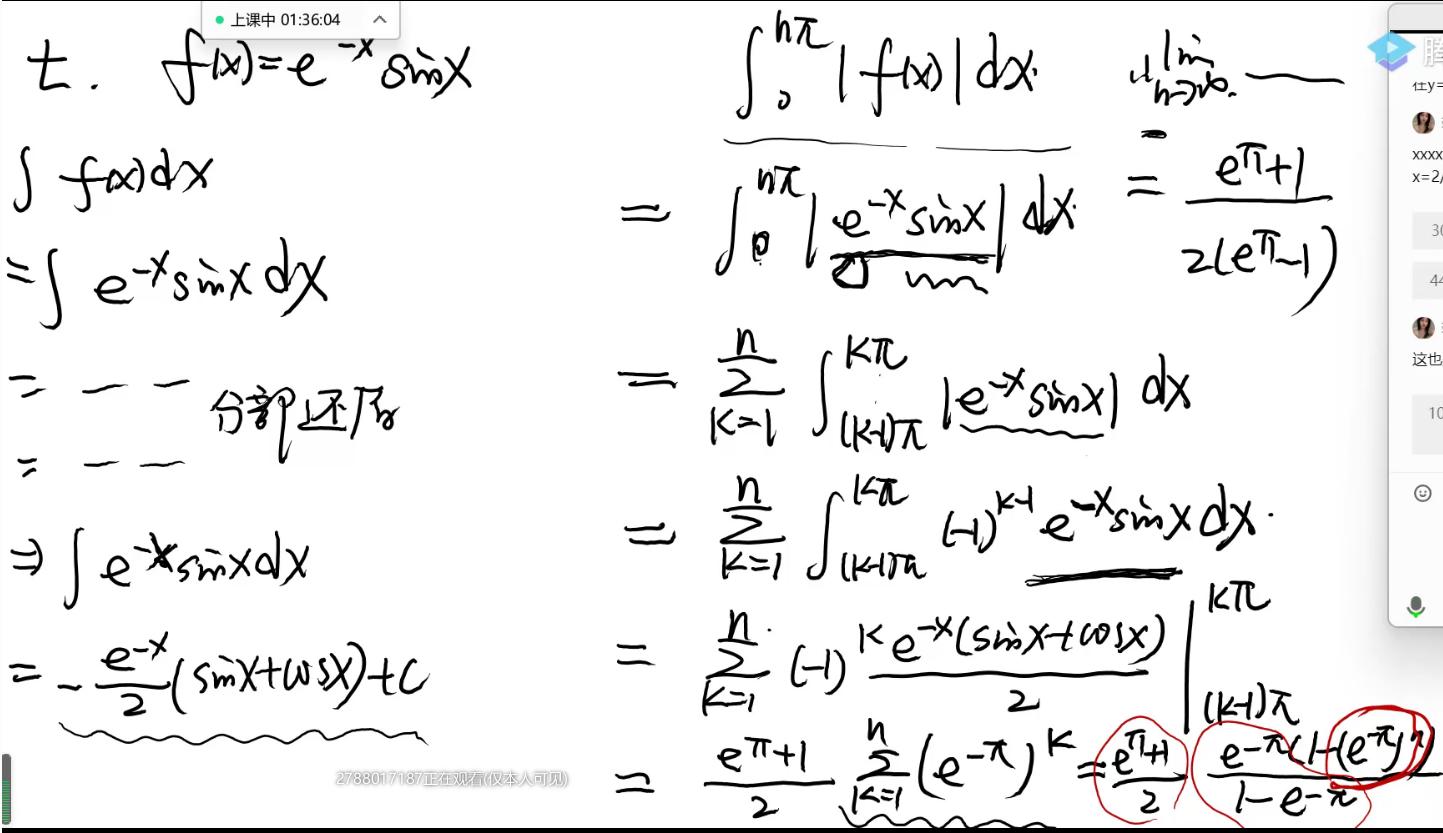 上课中 01:36:04
七. f(x)=e^{-x} sinx
∫ f(x)dx
=∫ e^{-x} sinx dx
= — — — 分部还原
= — —
⇒ ∫ e^{-x} sinxdx
= - e^{-x}/2 (sinx+cosx)+C
∫_0^{nπ} |f(x)| dx.
= ∫_0^{nπ} |e^{-x} sinx| dx.
= ∑_{k=1}^{n} ∫_{(k-1)π}^{kπ} |e^{-x} sinx| dx
= ∑_{k=1}^{n} ∫_{(k-1)π}^{kπ} (-1)^{k-1} e^{-x} sinx dx.
= ∑_{k=1}^{n} (-1)^k e^{-x}(sinx+cosx)/2 |_{(k-1)π}^{kπ}
= (e^π+1)/2 ∑_{k=1}^{n} (e^{-π})^k = (e^π+1)/2 e^{-π}(1-(e^{-π})^n)/(1-e^{-π})
lim_{n→∞} ——
= (e^π+1)/(2(e^π-1))
2788017187正在观看(仅本人可见)
在y=
xxxx
x=2/
30
44
这也
10